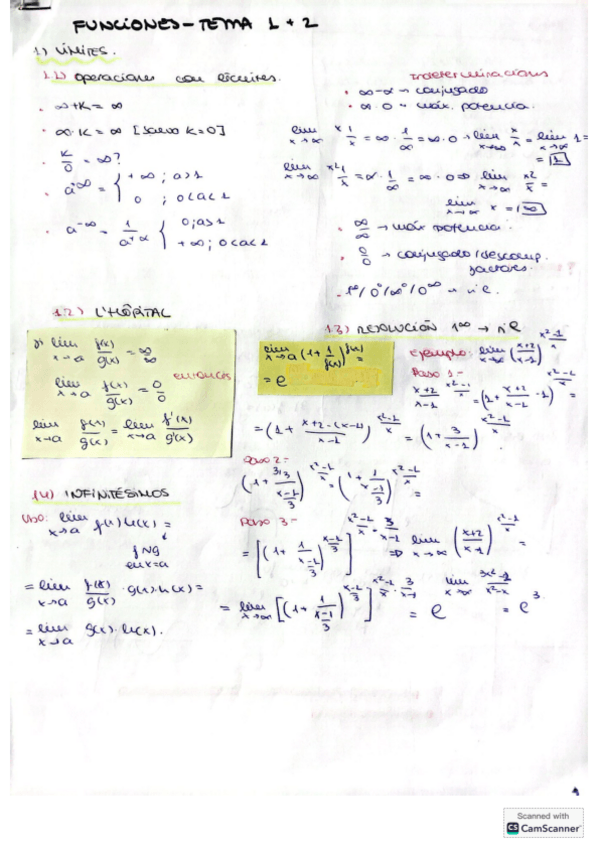 FUNCIONES - TEMA 1 + 2
1) LÍMITES.
1.1) operaciones con límites.
· ∞+K = ∞
· ∞·K = ∞ [salvo K=0]
· K/0 = ∞?
· a^∞ = { +∞ ; a>1
0 ; 0<a<1
· a^-∞ = 1/a^+∞ { 0; a>1
+∞ ; 0<a<1
Indeterminaciones
· ∞-∞ → conjugado
· ∞·0 → máx. potencia.
lim x→∞ x·1/x = ∞·1/∞ = ∞·0 → lim x→∞ x/x = lim x→∞ 1 =
= 1
lim x→∞ x²·1/x = ∞·1/∞ = ∞·0 ⇒ lim x→∞ x²/x =
lim x→∞ x = ∞
· ∞/∞ → máx potencia.
· 0/0 → conjugado/descomp.
factores.
· 1^∞/0^0/∞^0/0^∞ → nºe.
1.2) L'HÔPITAL
si lim x→a f(x)/g(x) = ∞/∞
lim x→a f(x)/g(x) = 0/0 entonces
lim x→a f(x)/g(x) = lim x→a f'(x)/g'(x)
1.3) RESOLUCIÓN 1^∞ → nºe
lim x→a (1+1/f(x))^f(x) =
= e
ejemplo: lim x→∞ (x+2/x-1)^x²-1/x
Paso 1.-
(x+2/x-1)^x²-1/x = (1+x+2/x-1 -1)^x²-1/x =
= (1+ x+2-(x-1)/x-1)^x²-1/x = (1+3/x-1)^x²-1/x.
Paso 2.-
(1+ 3/3/x-1/3)^x²-1/x = (1+ 1/x-1/3)^x²-1/x =
Paso 3.-
= [(1+ 1/x-1/3)^x-1/3]^x²-1/x · 3/x-1 ⇒ lim x→∞ (x+2/x-1)^x²-1/x =
= lim x→∞ [(1+ 1/x-1/3)^x-1/3]^x²-1/x · 3/x-1 = e^lim x→∞ 3x²-3/x²-x = e³.
1.4) INFINITÉSIMOS
Uso: lim x→a f(x)·h(x) =
f~g
en x=a
= lim x→a f(x)/g(x) · g(x)·h(x) =
= lim x→a g(x)·h(x).
1
Scanned with
CS CamScanner